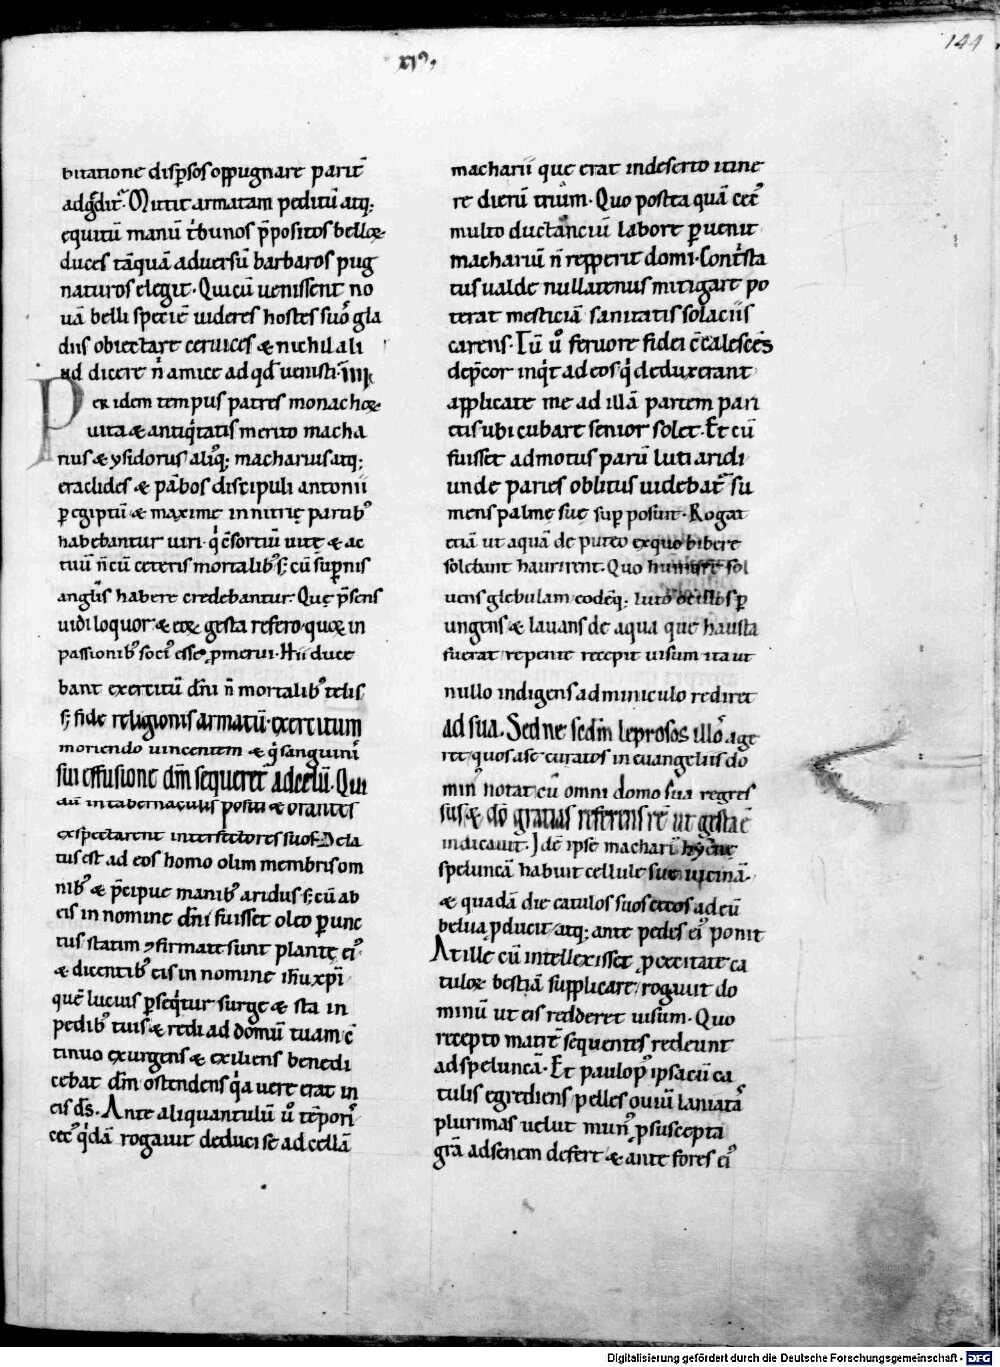 144
xi⁹,
bitatione disp̄sos oppugnare parit̄
adgdit᷑. Mittit armatam peditū atq;
equitū manū tͥbunos p̄positos belloꝝ
duces tāquā aduersū barbaros pug
naturos elegit. Quicū uenissent no
uā belli speciē uideres hostes suo᷑ gla
diis obiectare ceruices & nichil ali
ud dicere n̄ amice ad qd̄ uenisti. IIII.
Per idem tempus patres monachoꝝ
uita & antiqͥtatis merito macha
rius & ysidorus aliꝰq; macharius atq;
eraclides & pābos discipuli antonii
ꝑ egiptū & maxime in nitrię partibꝰ
habebantur uiri. qͥ c̄sortiū uitę & ac
tuū n̄ cū ceteris mortalibꝰ s; cū sup̄nis
angl̄is habere credebantur. Quę p̄sens
uidi loquor & eoꝝ gesta refero. quoꝝ in
passionibꝰ soci᷑ esse ꝓmerui. Hii duce
bant exercitū dn̄i n̄ mortalibꝰ telis,
s; fide religionis armatū. exercitum
moriendo uincentem & qͥ sanguini᷑
sui effusione dm̄ sequeret᷑ ad celū. Qui
dū in tabernaculis positi & orantes
expectarent interfectores suos. Dela
tus est ad eos homo olim membris om
nibꝰ & p̄cipue manibꝰ aridus s; cū ab
eis in nomine dn̄i fuisset oleo ꝑunc
tus statim ꝯfirmate sunt plantę ei᷑
& dicentibꝰ eis in nomine ih̄u xp̄i
quē lucius ꝑseqͥtur surge & sta in
pedibꝰ tuis & redi ad domū tuam c̄
tinuo exurgens & exiliens benedi
cebat dm̄ ostendens qͥa uere erat in
eis d̄s. Ante aliquantulū u᷑ tēpori᷑
cec᷑ qͥdā rogauit deduci se ad cellā
macharii que erat in deserto itine
re dierū triū. Quo postea quā cec᷑
multo ductanciū labore ꝑuenit
machariū n̄ repperit domi. Contͥsta
tus ualde nullatenus mitigare po
terat mesticiā sanitatis solaciis
carens. Tū u᷑ feruore fidei c̄calescēs
dep̄cor inqͥt ad eos qͥ deduxerant
applicate me ad illā partem pari
etis ubi cubare senior solet. Et cū
fuisset admotus parū luti aridi
unde paries oblitus uidebat᷑ su
mens palmę suę sup̄ posuit. Rogat
etiā ut aquā de puteo ex quo bibere
solebant haurirent. Quo humore sol
uens glebulam eodēq; luto oculos ꝑ
ungens & lauans de aqua que hausta
fuerat repente recepit uisum ita ut
nullo indigens adminiculo rediret
ad sua. Sed ne scd̄m leprosos illo᷑ age
ret quos a se curatos in euangeliis do
min᷑ notat cū omni domo sua regres
sus; & do̅ gratias referens rē ut gesta ē
indicauit. Idē ipse macharī hyene
speluncā habuit cellule sue uicinā.
& quadā die catulos suos cecos ad eū
belua ꝓducit atq; ante pedes ei᷑ ponit
At ille cū intellexisset ꝓ cecitate ca
tuloꝝ bestiā supplicare rogauit do
minū ut eis redderet uisum. Quo
recepto matrē sequentes redeunt
ad speluncā. Et paulo p᷑ ipsa cū ca
tulis egrediens pelles ouiū laniataꝝ
plurimas uelut mun᷑ ꝓ suscepta
gr̄a ad senem defert & ante fores ei᷑
Digitalisierung gefördert durch die Deutsche Forschungsgemeinschaft - DFG